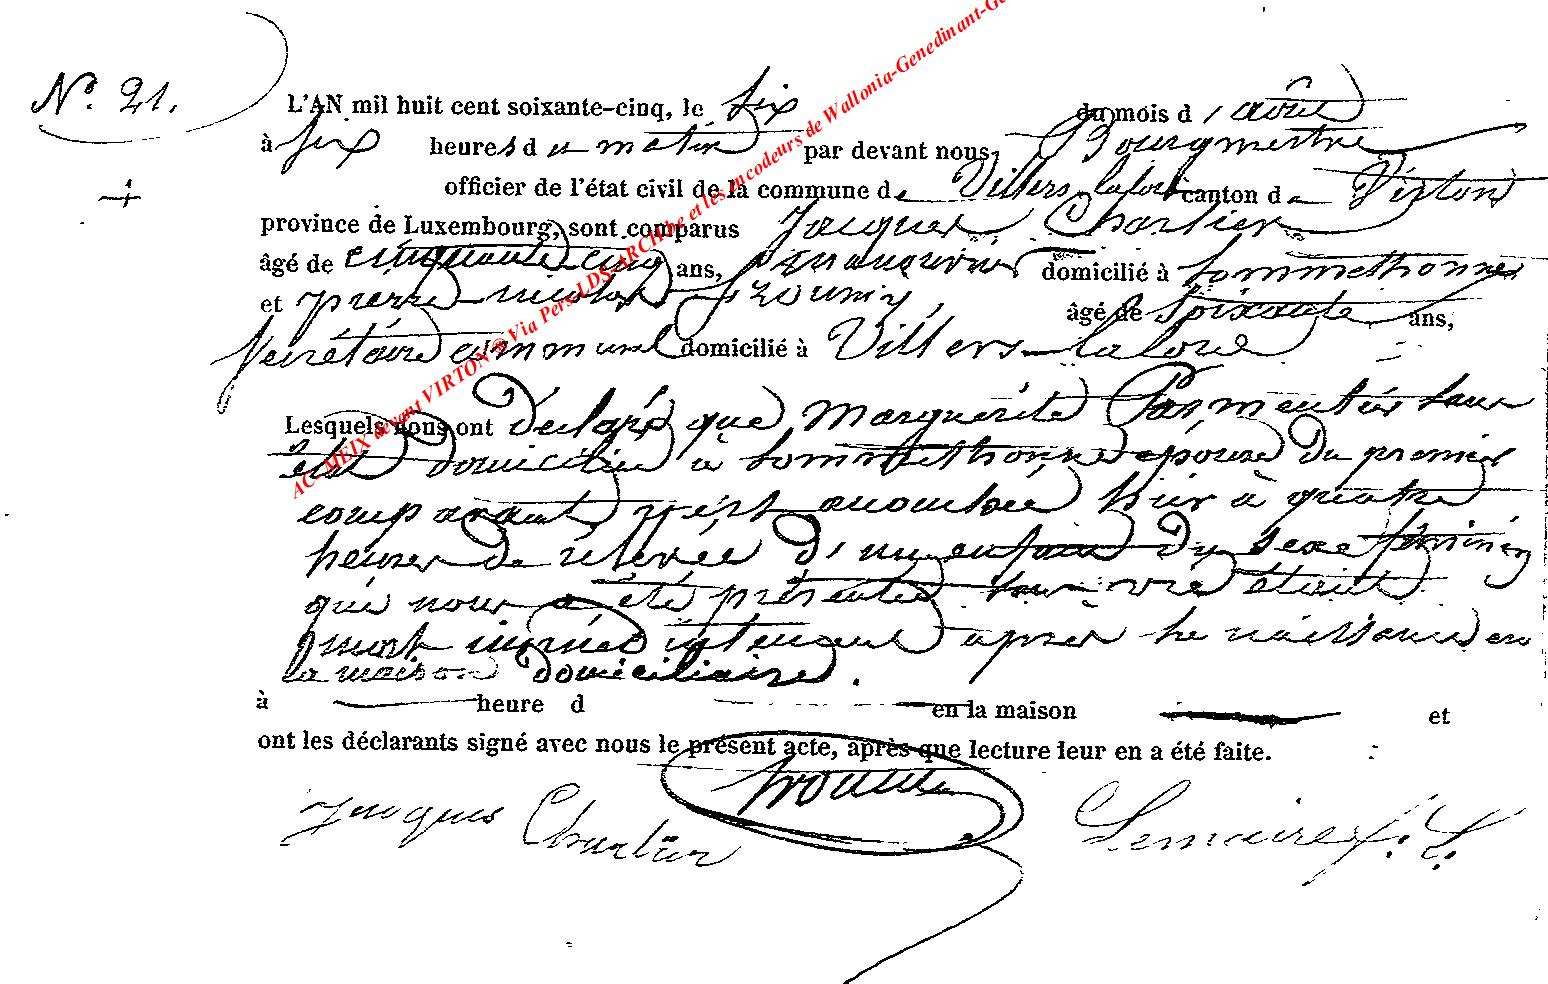 N.º 21.
L'AN mil huit cent soixante-cinq, le six du mois d'août
à six heures du matin par devant nous, Bourgmestre
officier de l'état civil de la commune de Villers-laloue canton de Virton
province de Luxembourg, sont comparus Jacques Charlier
âgé de cinquante-cinq ans, manouvrier domicilié à Sommethonne
et pierre nicolas âgé de soixante ans,
Secrétaire communal domicilié à Villers-laloue
Lesquels nous ont déclaré que Marguerite Parmentier sans
état domiciliée à Sommethonne épouse du premier
comparant s'est accouchée hier à quatre
heures de relevée d'un enfant du sexe féminin
qui nous a été présenté sans vie étant
mort immédiatement après sa naissance en
la maison domiciliaire.
à heure d en la maison et
ont les déclarants signé avec nous le présent acte, après que lecture leur en a été faite.
Jacques Charlier Lemaire f. f.
AC MEIX devant VIRTON ® Via Pers-LDS-ARCH-be et les encodeurs de Wallonia-Genedinant-Ge